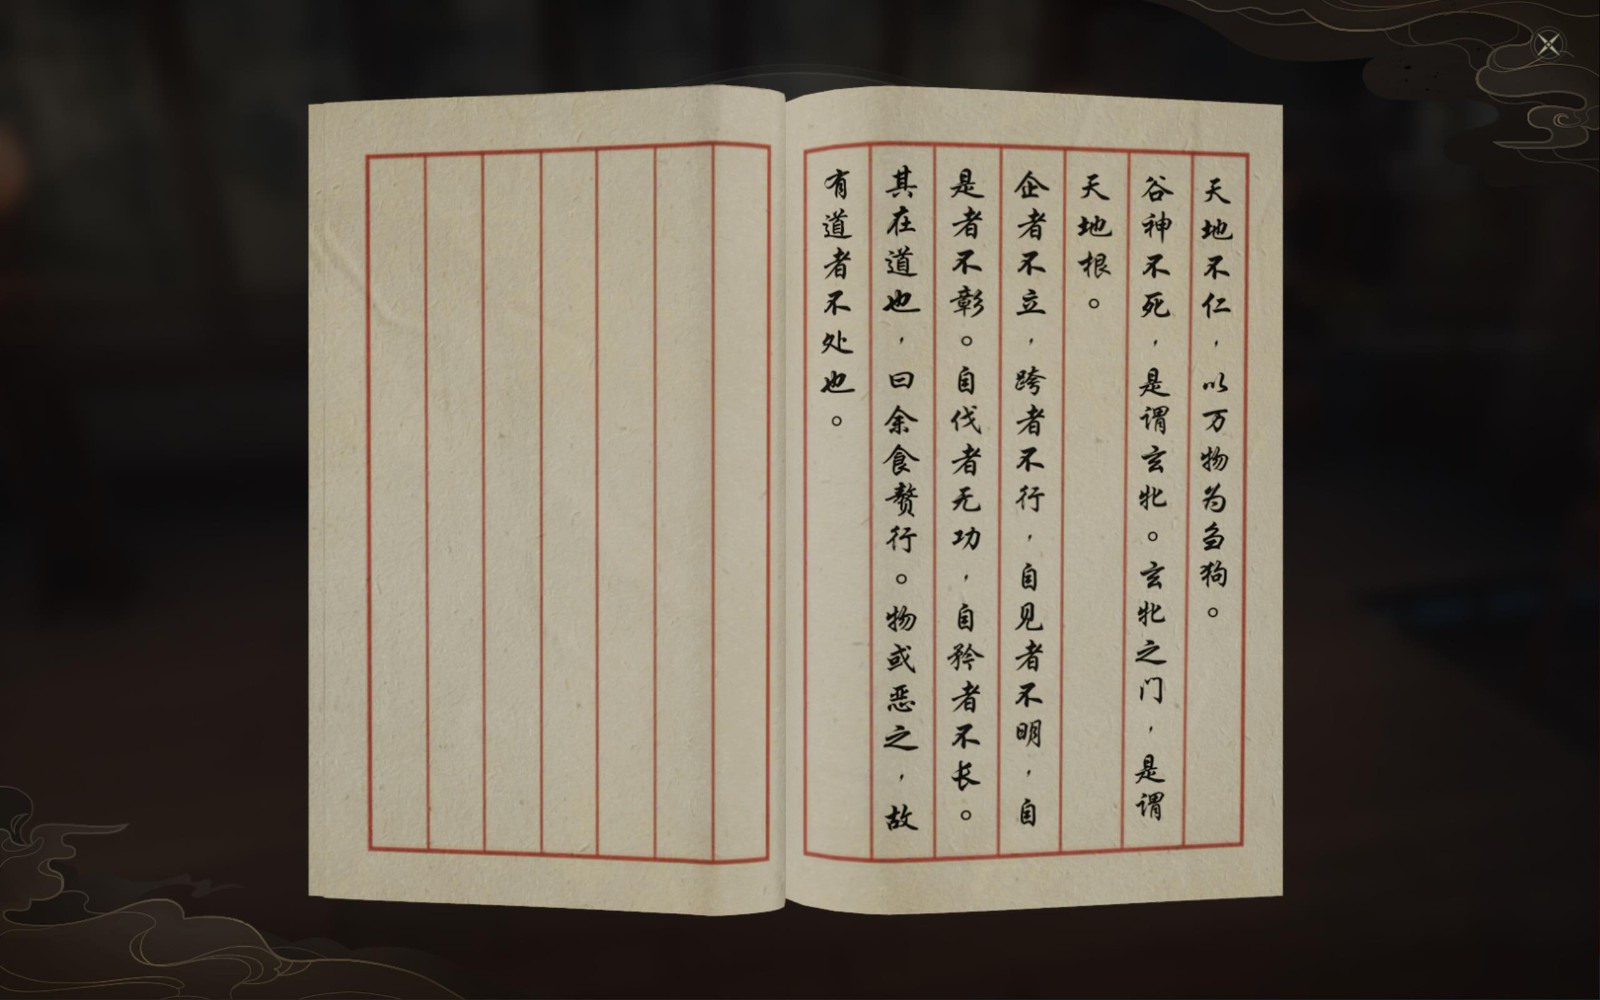 天地不仁，以万物为刍狗。
谷神不死，是谓玄牝。玄牝之门，是谓
天地根。
企者不立，跨者不行，自见者不明，自
是者不彰。自伐者无功，自矜者不长。
其在道也，曰余食赘行。物或恶之，故
有道者不处也。